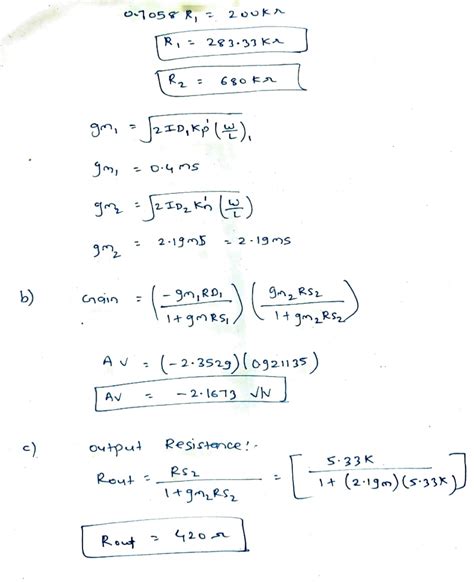 0.7058 R₁ = 200KΩ
R₁ = 283.33KΩ
R₂ = 680KΩ
gm₁ = √2ID₁Kp'(W/L)₁
gm₁ = 0.4ms
gm₂ = √2ID₂K'n(W/L)
gm₂ = 2.19m℧ = 2.19ms
b) Gain = (-gm₁RD₁/1+gmRS₁)(gm₂RS₂/1+gm₂RS₂)
AV = (-2.3529)(0921135)
AV = -2.1673 V/V
c) output Resistence:-
Rout = RS₂/1+gm₂RS₂ = [5.33K/1+(2.19m)(5.33K)]
Rout = 420Ω